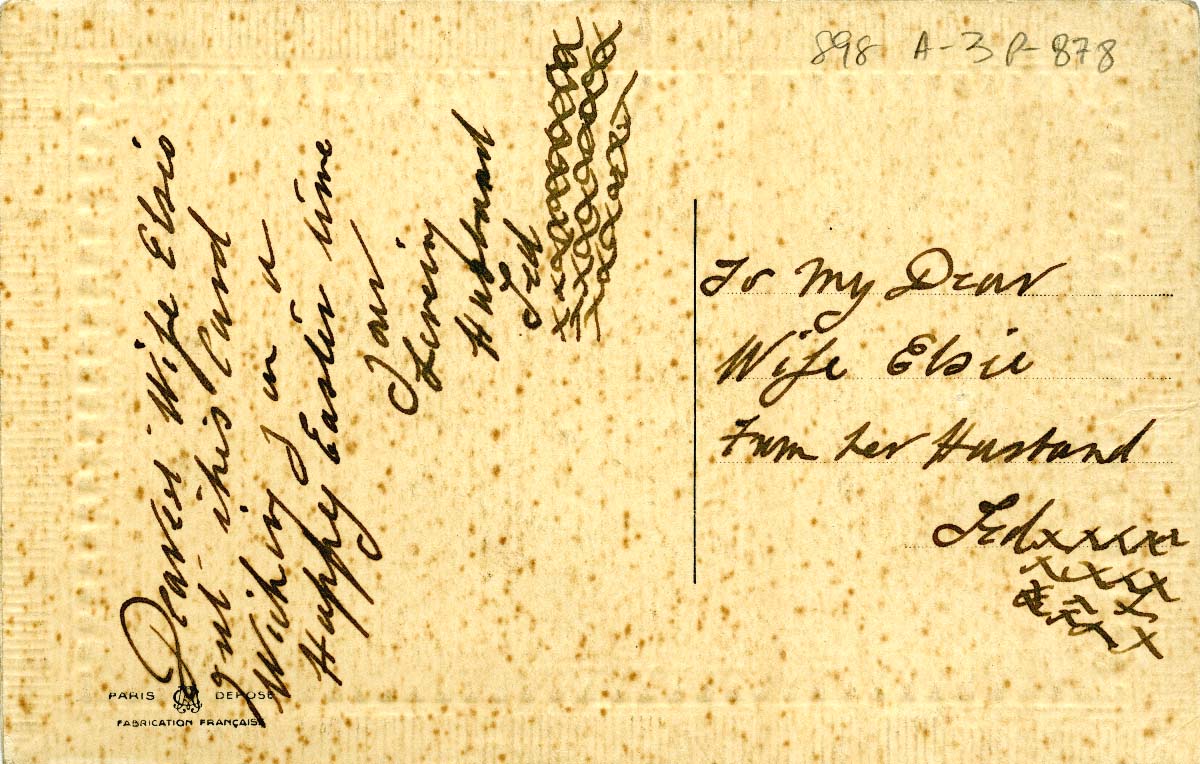 898 A-3 P-878
Dearest Wife Elsie
Just this Card
Wishing You a
Happy Easter time
Your
Loving
Husband
Ted
To My Dear
Wife Elsie
From her Husband
Ted xxxxx
xxxxx
PARIS DEPOSÉ
FABRICATION FRANÇAISE